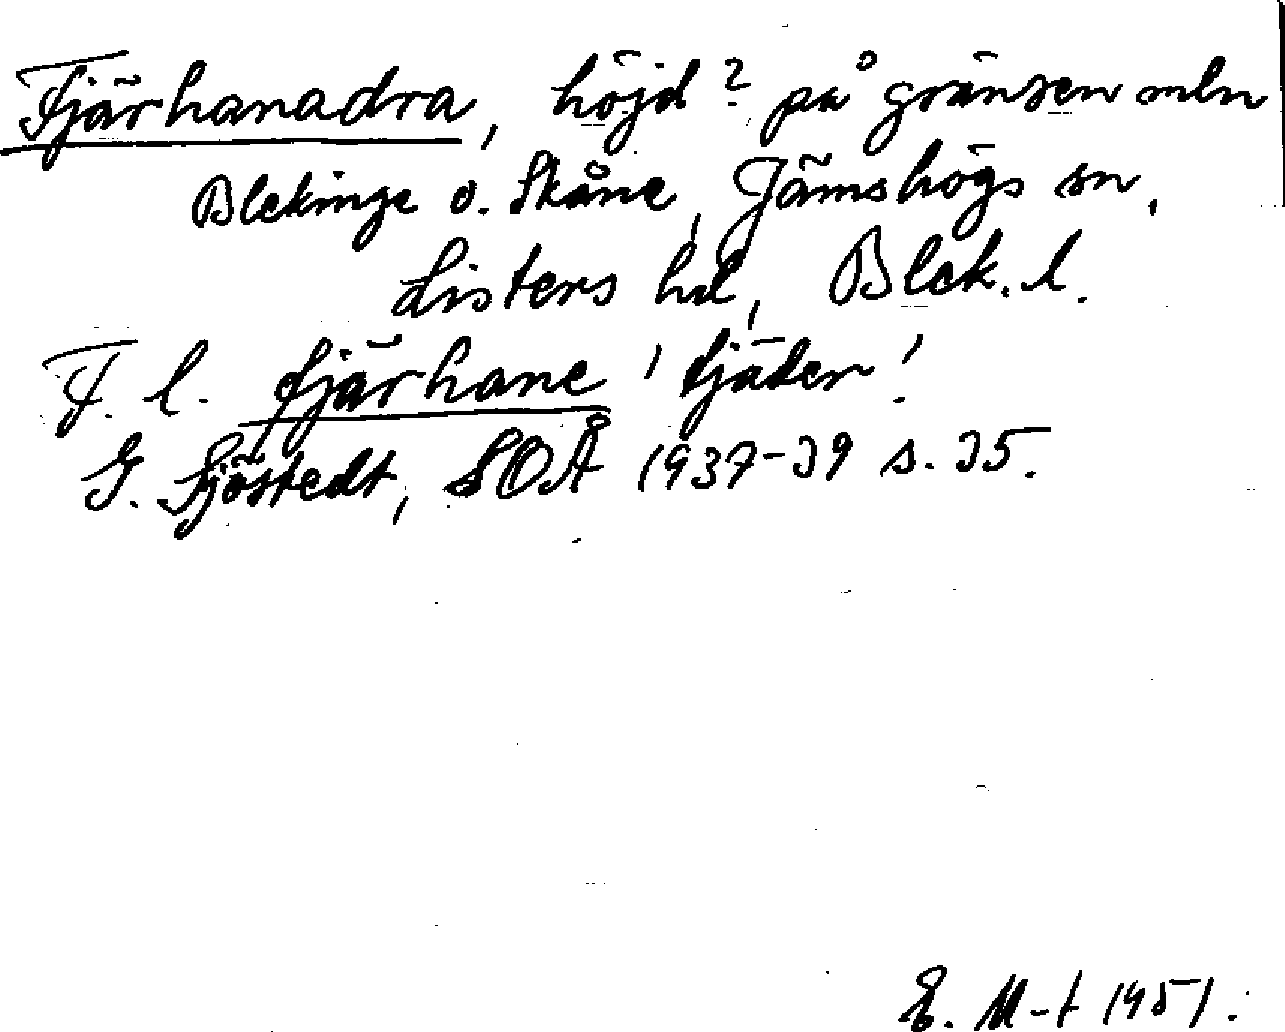 Fjärhanadra, höjd? på gränsen mln
Blekinge o. Skåne, Jämshögs sn,
Listers hd, Blek. l.
F. l. fjärhane 'tjäder'.
G. Sjöstedt, SOÅ 1937-39 s. 35.
E. M-t 1951.